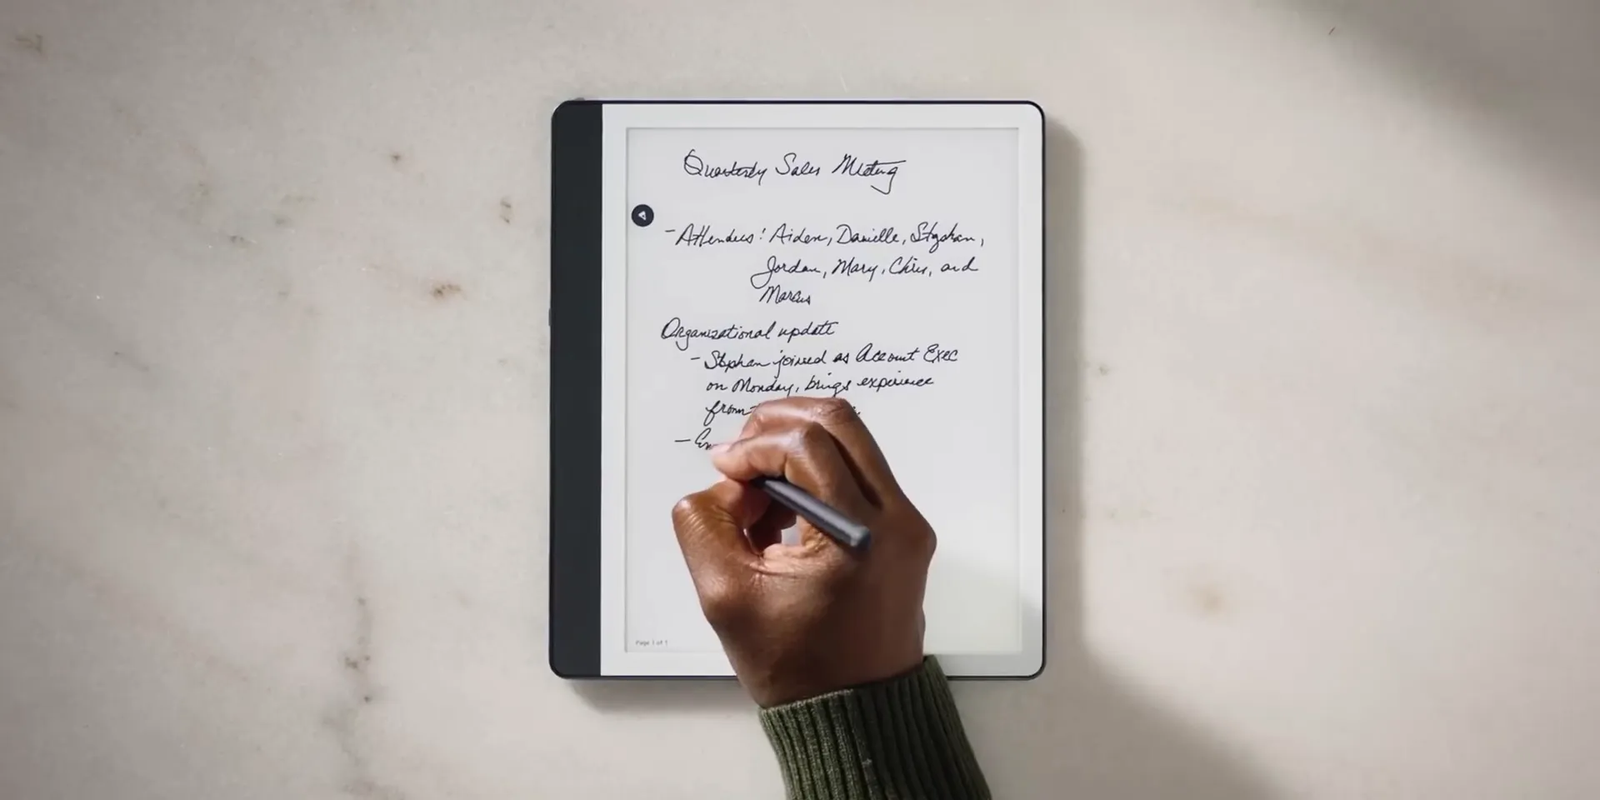 Quarterly Sales Meeting
- Attendees: Aiden, Danielle, Stephen,
Jordan, Mary, Chris, and
Marcus
Organizational update
- Stephen joined as Account Exec
on Monday, brings experience
from
-
Page 1 of 1